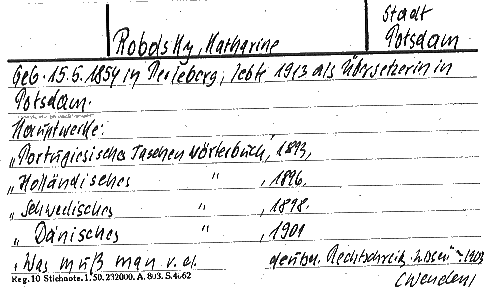 Stadt
Robolsky, Katharine
Potsdam
Geb. 15.5.1854 in Perleberg, lebte 1913 als Übersetzerin in
Potsdam.
Hauptwerke:
„Portugiesisches Taschenwörterbuch, 1893,
„Holländisches " , 1896,
„Schwedisches " , 1898.
„Dänisches " , 1901
„Was muß man v. d. deutschn. Rechtschreib. wissen" 1903
Reg. 10 Stichnote. 1. 50. 232000. A. 803. S. 4. 62
(Wenden)